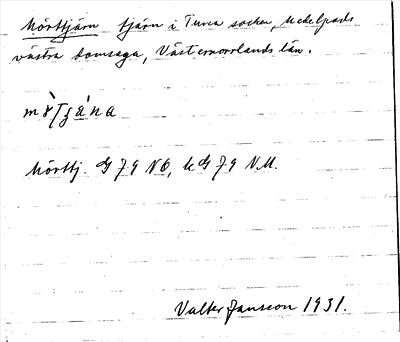 Mörttjärn tjärn i Tuna socken, Medelpads
västra domsaga, Västernorrlands län.
Mörttj. G 79 NO, kG 79 N.M.
Valter Jansson 1931.